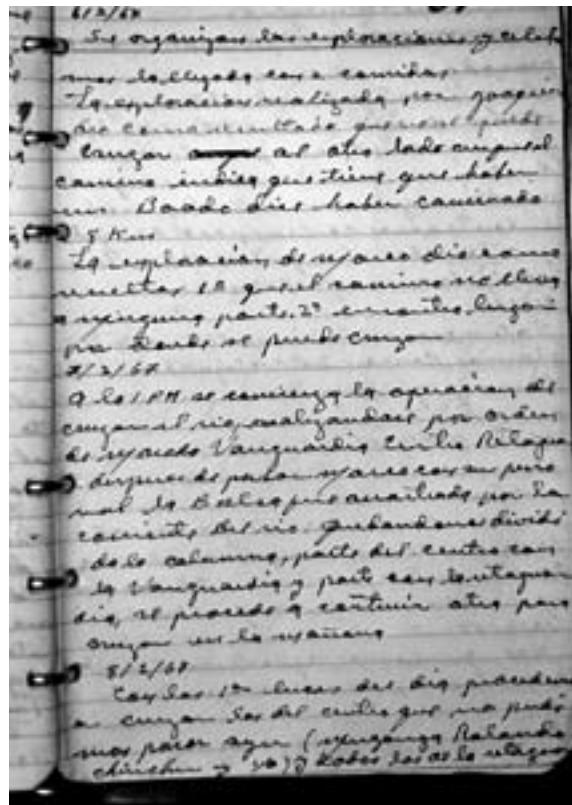 6/2/67
Se organizan las exploraciones y celebra
mos la llegada con comidas
La exploracion realizada por Joaquin
dio como resultado que no se puede
cruzar al otro lado aunque el
camino indica que tiene que haber
un dice haber caminado
8 Km
La exploracion de Marcos dio como
resultado 1º que el camino no lleva
a ninguna parte. 2º encontro lugar
por donde se puede cruzar
7/2/67
A la 1 PM se comienza la operacion de
cruzar el rio, realizandose por orden
de Marcos Vanguardia Centro Retagua
despues de pasar Marcos con su perso
nal la Balsa fue arrastrada por la
corriente del rio quedandonos dividi
da la columna, parte del centro con
la Vanguardia y parte con la retaguar
dia, se procede a construir otra para
cruzar en la mañana
8/2/67
Con las 1as luces del dia procedimos
a cruzar los del centro que no pudi
mos pasar ayer ( Rolando
y yo) y todos los de la retagua